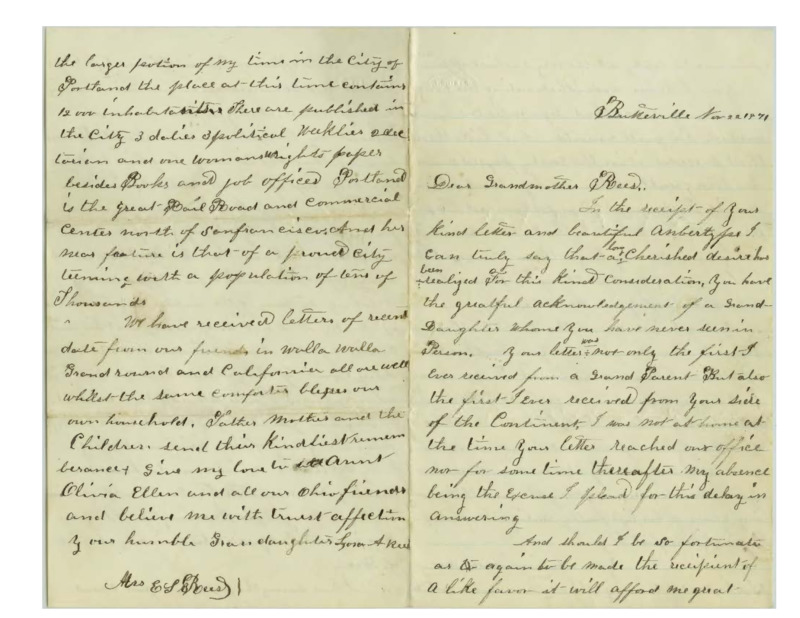 Butteville Nov 22 1871
Dear Grandmother Reed,.
In the receipt of Your
Kind letter and beautiful Anbertype I
Can truly say that a long Cherished desire has
been realized For this Kind Consideration, You have
the greatful acknowledgement of a Grand-
Daughter whome You have never seen in
Person. Your letter was not only the first I
Ever received from a Grand Parent But also
the first I Ever received from Your side
of the Continent, I was not at home at
the time Your letter reached our office
nor for some time thereafter My absence
being the Excuse I plead for this delay in
answering
And should I be so fortunate
as again to be made the recipient of
a like favor it will afford me great
the larger potion of my time in the City of
Portland the place at this time contains
12 000 inhabitants There are published in
the City 3 dalies 3 political Weaklies
and one womans rights paper
besides Books and job offices Portland
is the great Rail Road and Commercial
Center north of Sanfrancisco, And her
near feature is that of a proud City
teeming with a population of tens of
Thousands
We have received letters of recent
date from our friends in Walla Walla
Grand round and Califonnier all are well
whilst the same comforter blesses our
own household, Father Mother and the
Children. send their Kindliest remem
berance Give my love to Aunt
Olivia Ellen and all our Ohio friends
and believe me with truest affection
Your humble Grandaughter A Reed
Mrs E S Reed